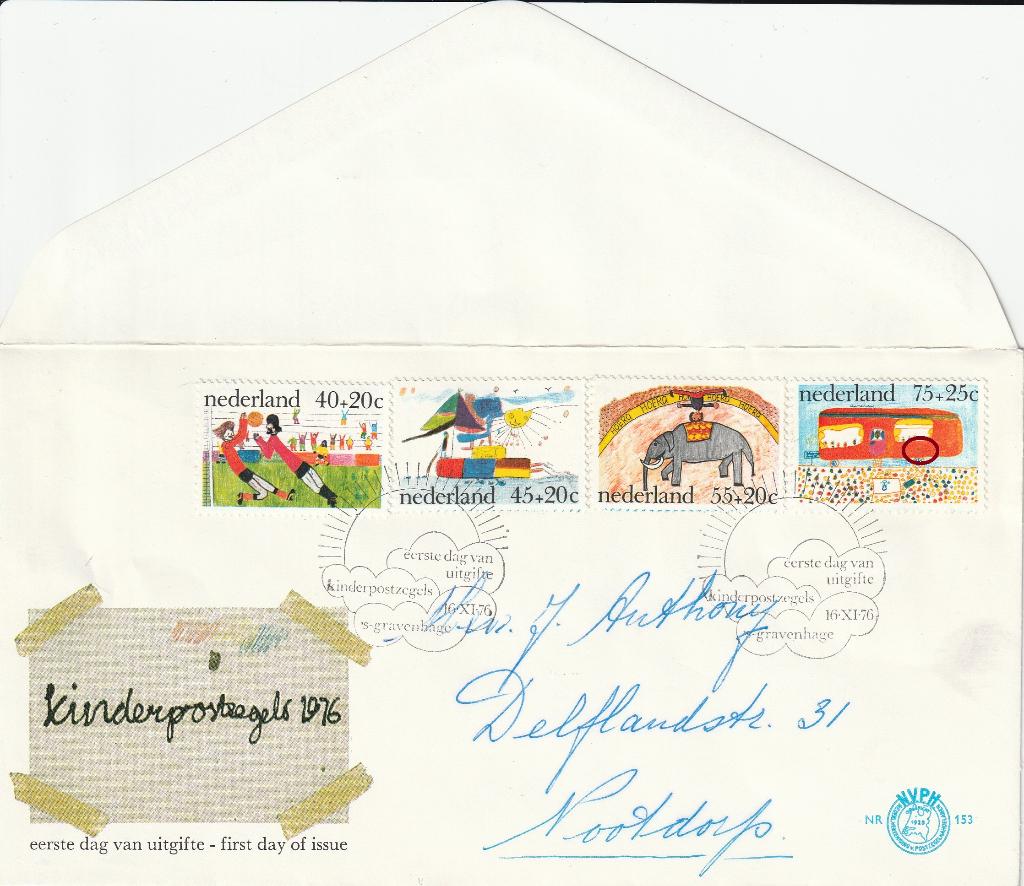 nederland 40+20c
nederland 45+20c
HOERA HOERA HOERA HOERA
nederland 55+20c
nederland 75+25c
eerste dag van
uitgifte
kinderpostzegels
16·XI·76
's-gravenhage
eerste dag van
uitgifte
kinderpostzegels
16·XI·76
's-gravenhage
J. Anthony
Delflandstr. 31
Nootdorp.
kinderpostzegels 1976
eerste dag van uitgifte - first day of issue
NR
NVPH
1928
153